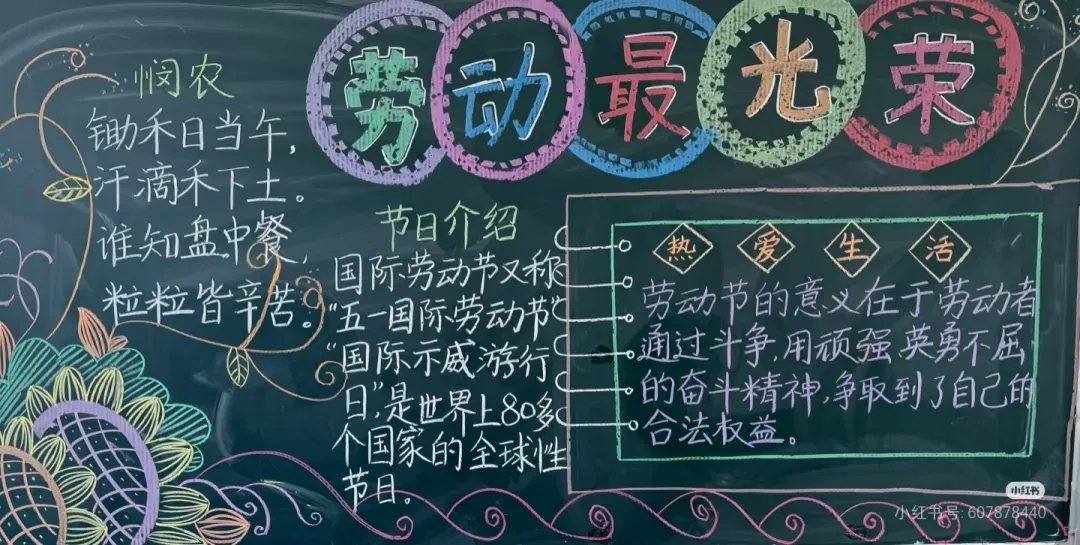 劳动最光荣
悯农
锄禾日当午,
汗滴禾下土。
谁知盘中餐,
粒粒皆辛苦。
节日介绍
国际劳动节又称
“五一国际劳动节”
“国际示威游行
日”,是世界上80多
个国家的全球性
节日。
热爱生活
劳动节的意义在于劳动者
通过斗争,用顽强英勇不屈
的奋斗精神,争取到了自己的
合法权益。
小红书
小红书号: 607878440